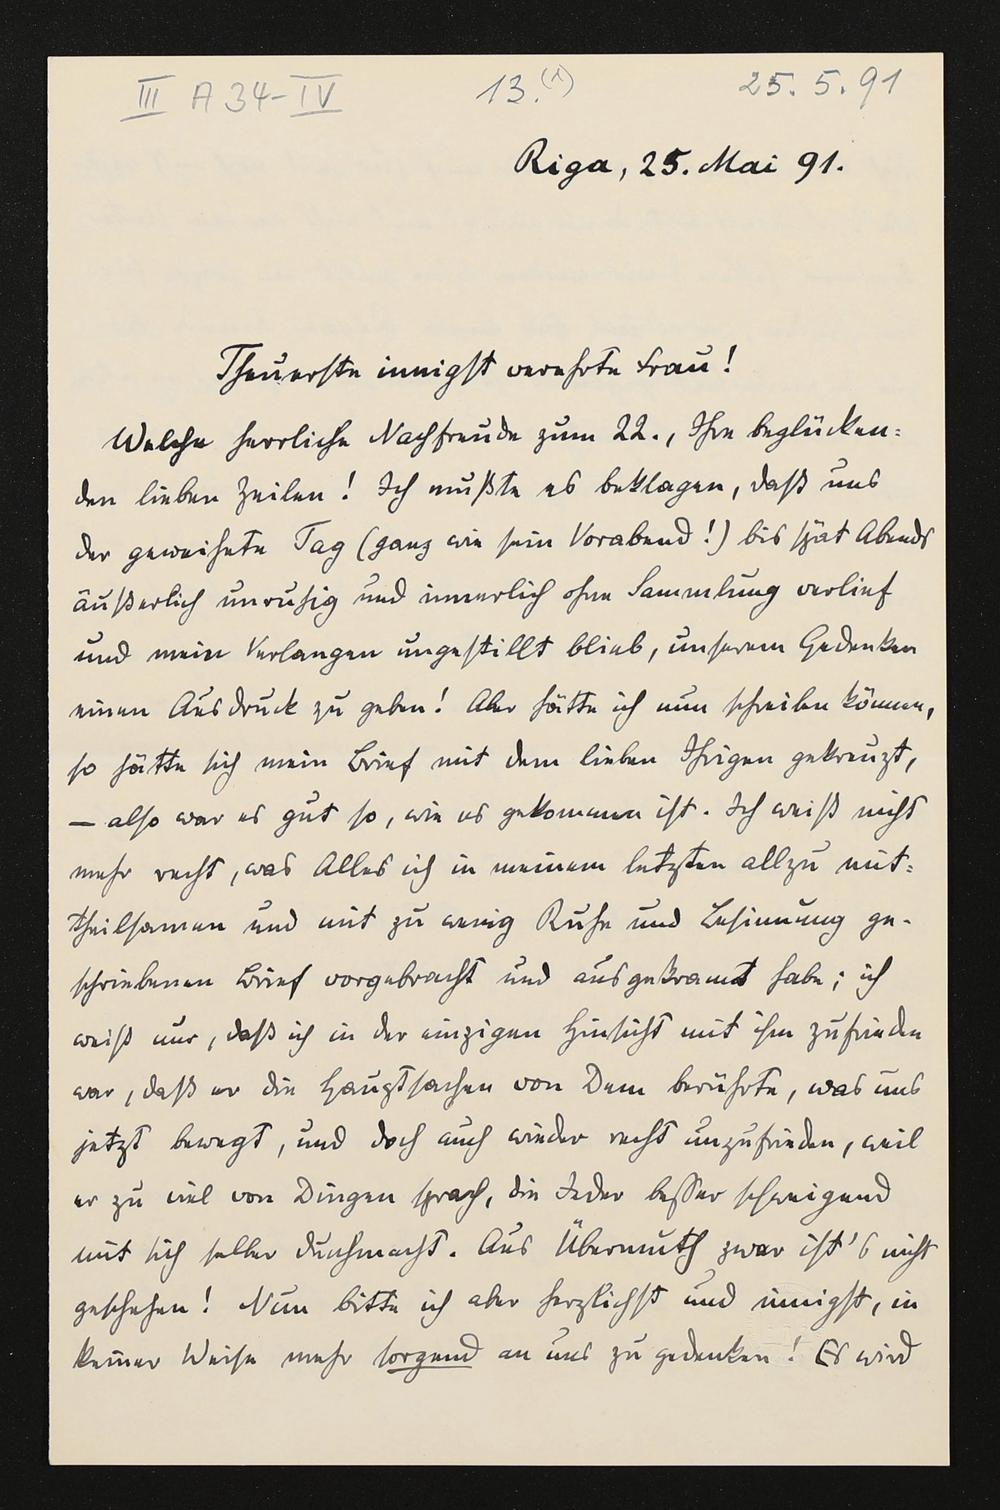 III A 34-IV
13.(1)
25. 5. 91
Riga, 25. Mai 91.
Theuerste innigst verehrte Frau!
Welche herrliche Nachfreude zum 22., Ihre beglücken=
den lieben Zeilen! Ich mußte es beklagen, daß uns
der geweihete Tag (ganz wie sein Vorabend!) bis spät Abends
äußerlich unruhig und innerlich ohne Sammlung verlief
und mein Verlangen ungestillt blieb, unserem Gedenken
einen Ausdruck zu geben! Aber hätte ich nun schreiben können,
so hätte sich mein Brief mit dem lieben Ihrigen gekreuzt,
– also war es gut so, wie es gekommen ist. Ich weiß nicht
mehr recht, was Alles ich in meinem letzten allzu mit=
theilsamen und mit zu wenig Ruhe und Besinnung ge-
schriebenen Brief vorgebracht und ausgekramt habe; ich
weiß nur, daß ich in der einzigen Hinsicht mit ihm zufrieden
war, daß er die Hauptsachen von Dem berührte, was uns
jetzt bewegt, und doch auch wieder recht unzufrieden, weil
er zu viel von Dingen sprach, die Jeder besser schweigend
mit sich selber durchmacht. Aus Übermuth zwar ist's nicht
geschehen! Nun bitte ich aber herzlichst und innigst, in
keiner Weise mehr sorgend an uns zu gedenken! Es wird